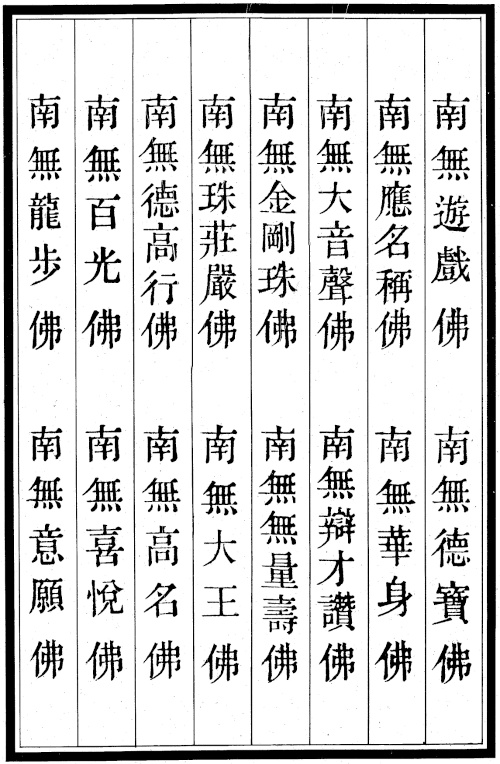 南無遊戲佛　南無德寶佛
南無應名稱佛　南無華身佛
南無大音聲佛　南無辯才讚佛
南無金剛珠佛　南無無量壽佛
南無珠莊嚴佛　南無大王佛
南無德高行佛　南無高名佛
南無百光佛　南無喜悅佛
南無龍步佛　南無意願佛